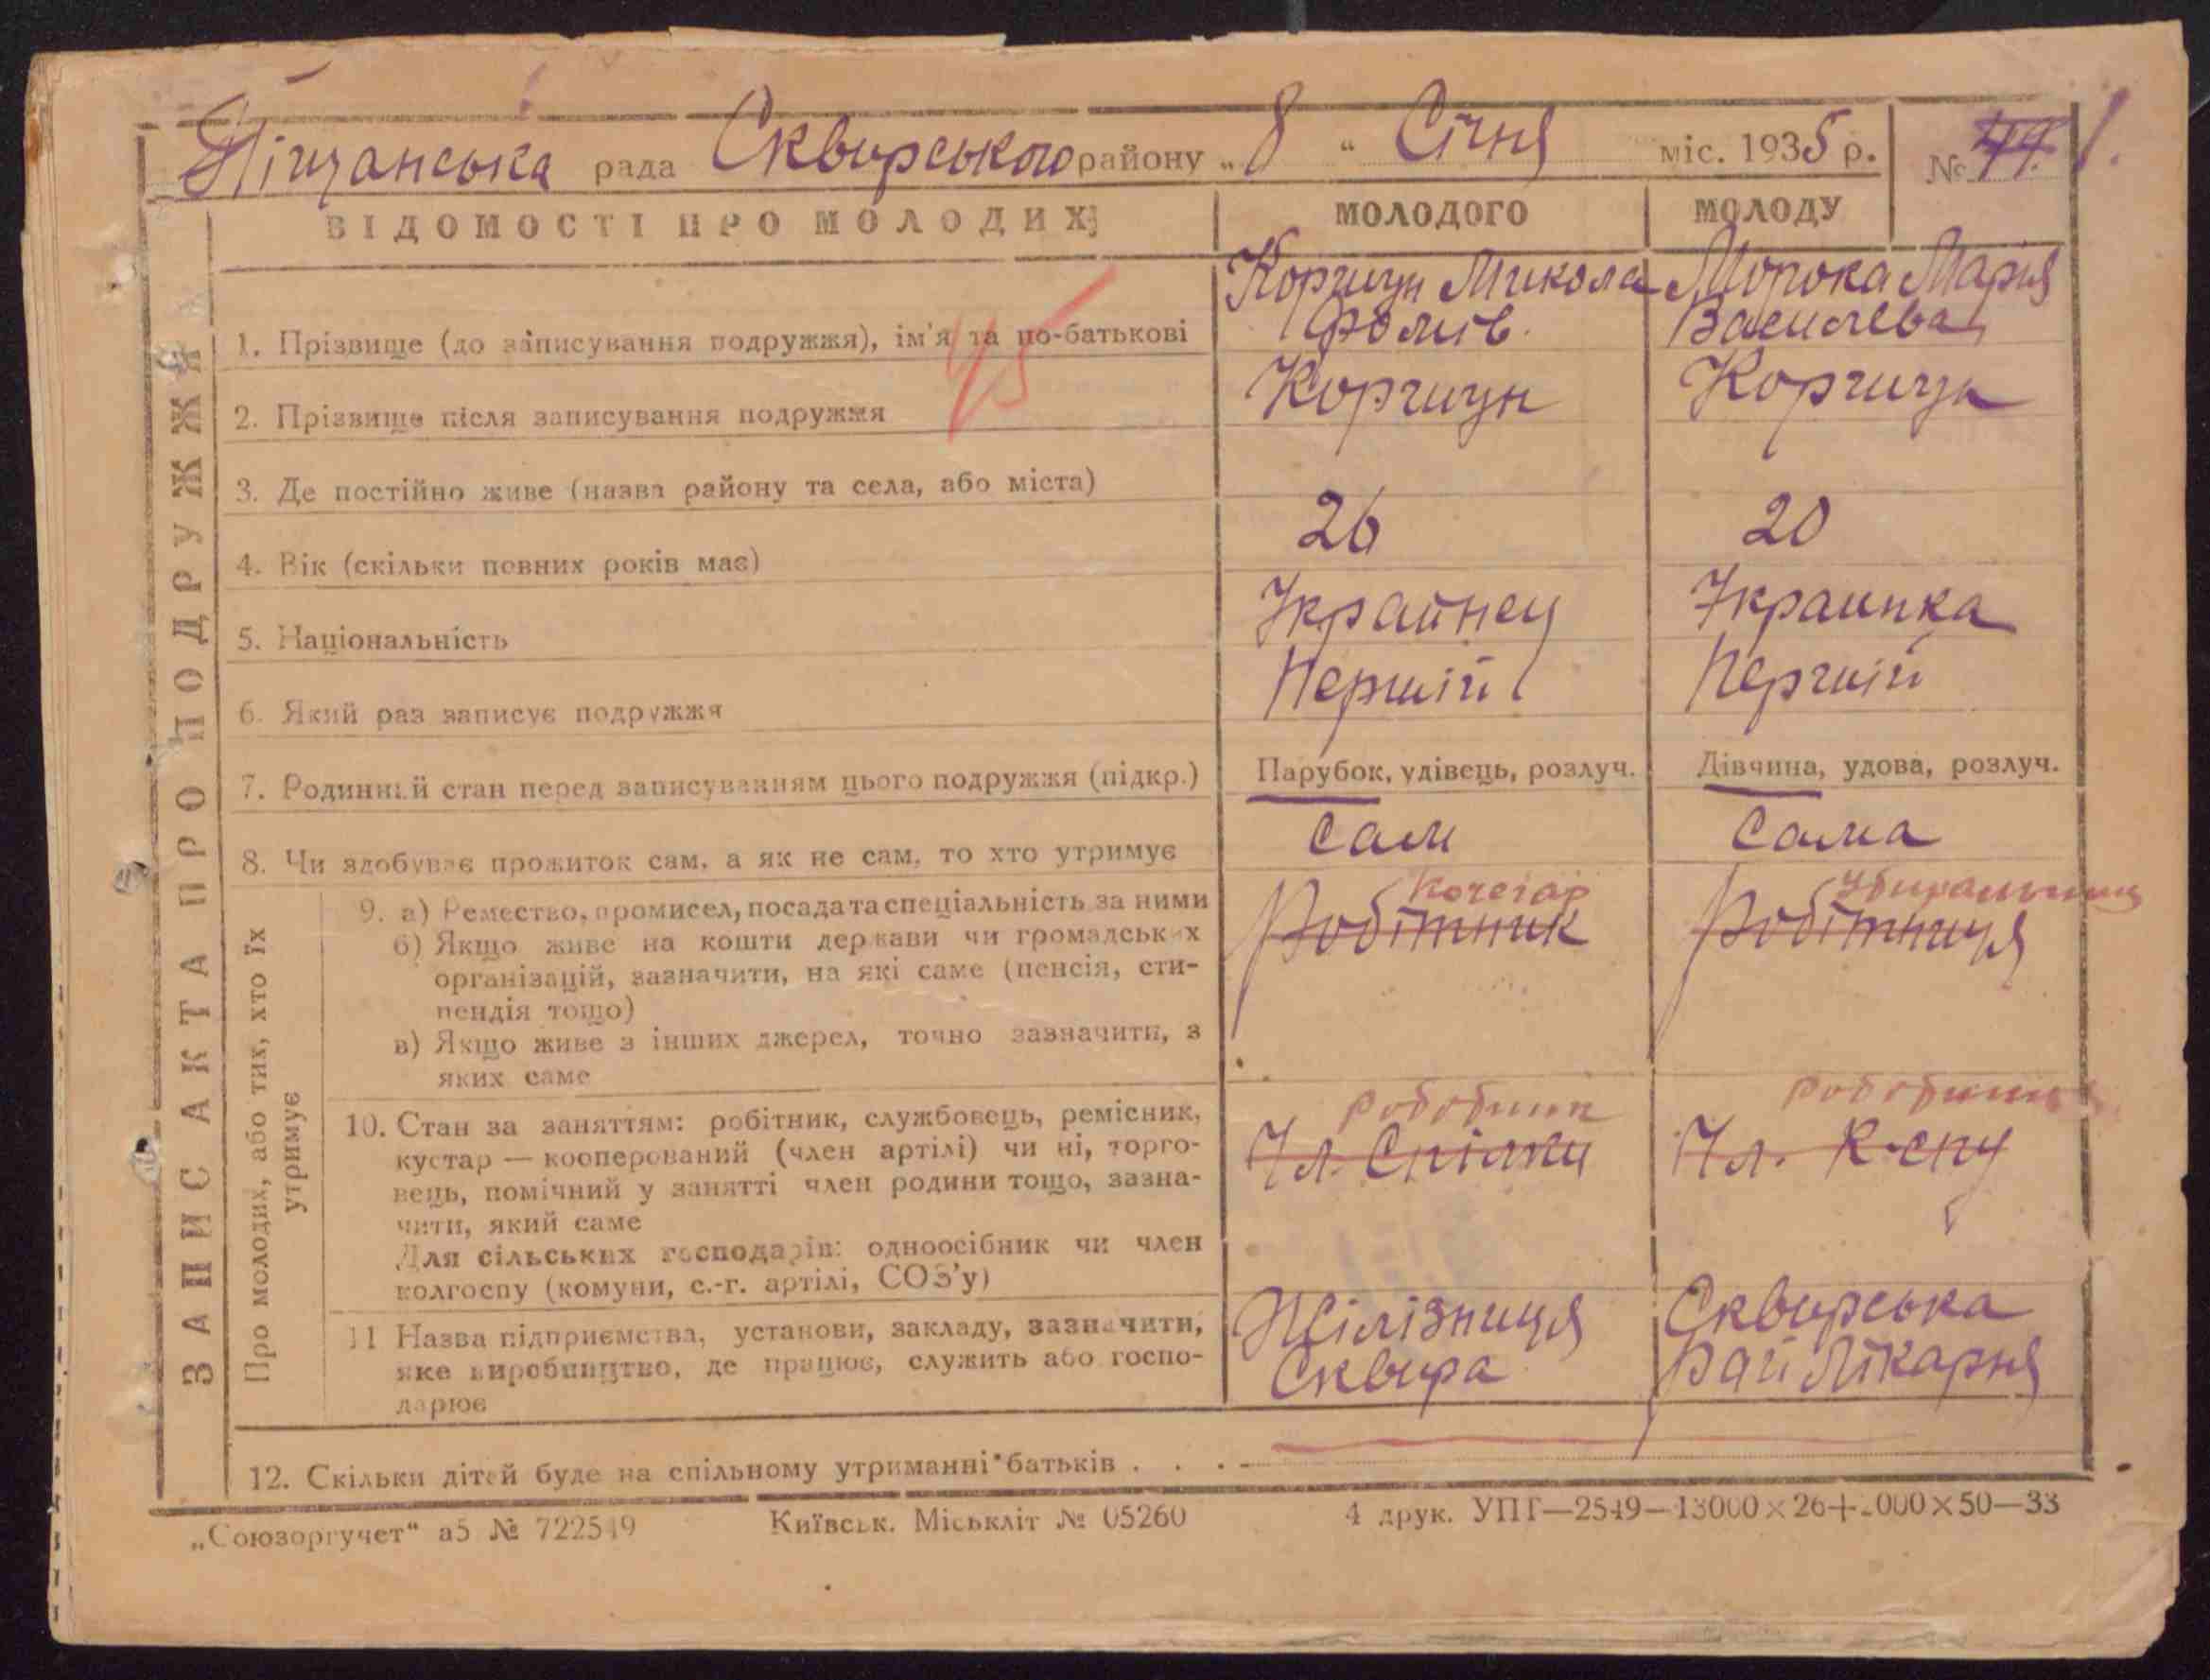 Піщанська рада Сквирського району „ 8 “ Січня міс. 1935 р. № 1.
ВІДОМОСТІ ПРО МОЛОДИХ МОЛОДОГО МОЛОДУ
ЗАПИС АКТА ПРО ПОДРУЖЖЯ
1. Прізвище (до записування подружжя), ім'я та по-батькові Коршун Микола Морока Марія
Васильєва
45
2. Прізвище після записування подружжя Коршун Коршун
3. Де постійно живе (назва району та села, або міста)
4. Вік (скільки повних років має) 26 20
5. Національність Украинец Украинка
6. Який раз записує подружжя Перший Перший
7. Родинний стан перед записуванням цього подружжя (підкр.) Парубок, удівець, розлуч. Дівчина, удова, розлуч.
8. Чи здобуває прожиток сам, а як не сам, то хто утримує сам сама
Про молодих, або тих, хто їх
утримує
9. а) Ремество, промисел, посада та спеціальність за ними Кочегар
б) Якщо живе на кошти держави чи громадських Робітник Робітниця
організацій, зазначити, на які саме (пенсія, сти-
пендія тощо)
в) Якщо живе з інших джерел, точно зазначити, з
яких саме
10. Стан за заняттям: робітник, службовець, ремісник,
кустар — кооперований (член артілі) чи ні, торго- Чл. Спілки Чл. К-спу
вець, помічний у занятті член родини тощо, зазна-
чити, який саме
Для сільських господарів: одноосібник чи член
колгоспу (комуни, с.-г. артілі, СОЗ'у)
11 Назва підприємства, установи, закладу, зазначити, Жілізниця Сквирська
яке виробництво, де працює, служить або госпо- Сквира Рай Лікарня
дарює
12. Скільки дітей буде на спільному утриманні батьків . . . -
„Союзоргучет“ а5 № 722549 Київськ. Міськліт № 05260 4 друк. УПТ—2549—13000×26+2000×50—33